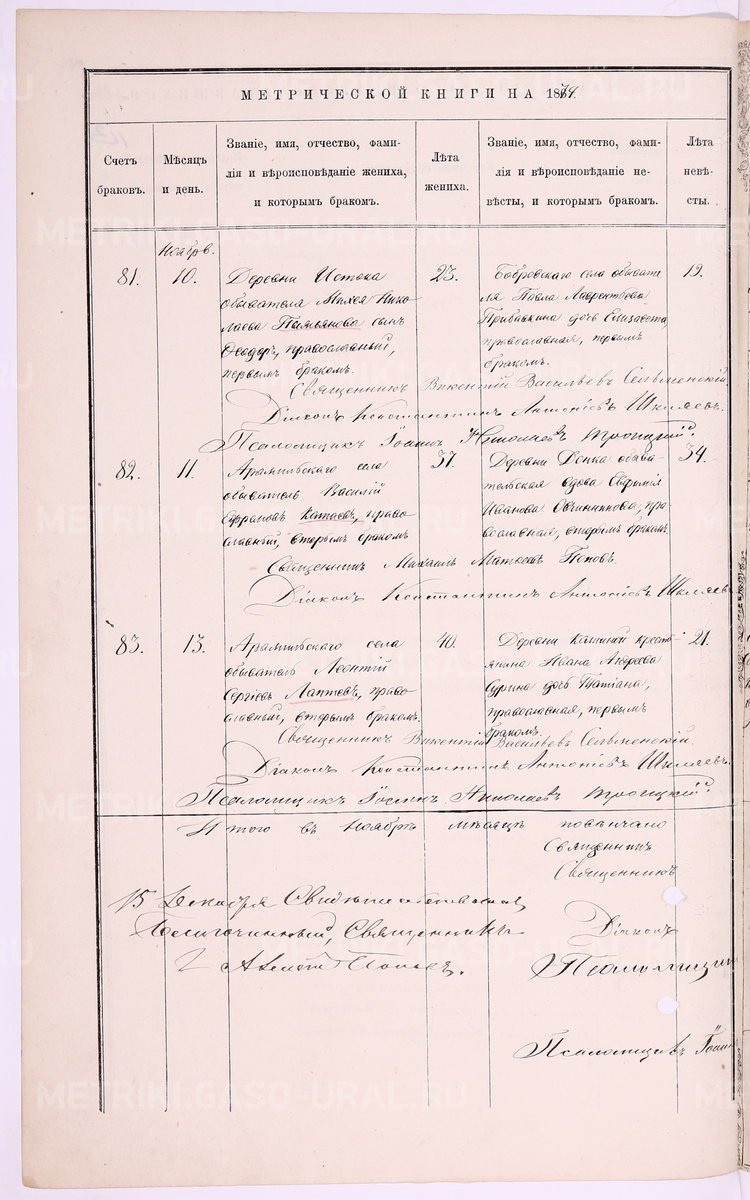 МЕТРИЧЕСКОЙ КНИГИ НА 1874.
Счетъ браковъ.
Мѣсяцъ и день.
Званіе, имя, отчество, фами-
лія и вѣроисповѣданіе жениха,
и которымъ бракомъ.
Лѣта жениха.
Званіе, имя, отчество, фами-
лія и вѣроисповѣданіе не-
вѣсты, и которымъ бракомъ.
Лѣта невѣ-
сты.
Ноябрь.
81. 10.
Деревни Истока
обывателя Михея Нико
лаева сынъ
Ѳеодоръ, православный,
первымъ бракомъ.
23.
Бобровскаго села обывате
ля Павла Лаврентьева
Прибавкина дочь Елизавета
православная, первымъ
бракомъ.
19.
Священникъ Викентій Васильевъ Сельменскій
Діаконъ Константинъ Антоніевъ Шкляевъ.
Псаломщикъ Іоаннъ Николаевъ Троицкій.
82. 11.
Арамильскаго села
обыватель Василій
Катаевъ, право
славный, вторымъ бракомъ
37.
Деревни обыва-
тельская вдова Евфимія
Иванова Овчинникова, пра
вославная, вторымъ бракомъ
34.
Священникъ Михаилъ Матѳеевъ Поповъ.
Діаконъ Константинъ Антоніевъ Шкляевъ
83. 13.
Арамильскаго села
обыватель Леонтій
Сергѣевъ Лаптевъ, право
славный, вторымъ бракомъ.
40.
Деревни кресть-
янина Ивана Андреева
Сурина дочь Татіана,
православная, первымъ
бракомъ.
21.
Священникъ Викентій Васильевъ Сельменскій.
Діаконъ Константинъ Антоніевъ Шкляевъ.
Псаломщикъ Іоаннъ Николаевъ Троицкій.
Итого въ Ноябрѣ мѣсяцѣ повѣнчано
Священникъ
Священникъ
15 Декабря Свидѣтельствовалъ
Благочинный, Священникъ
Поповъ.
Діаконъ
Псаломщик
Псаломщикъ Іоан
METRIKI.GASO-URAL.RU